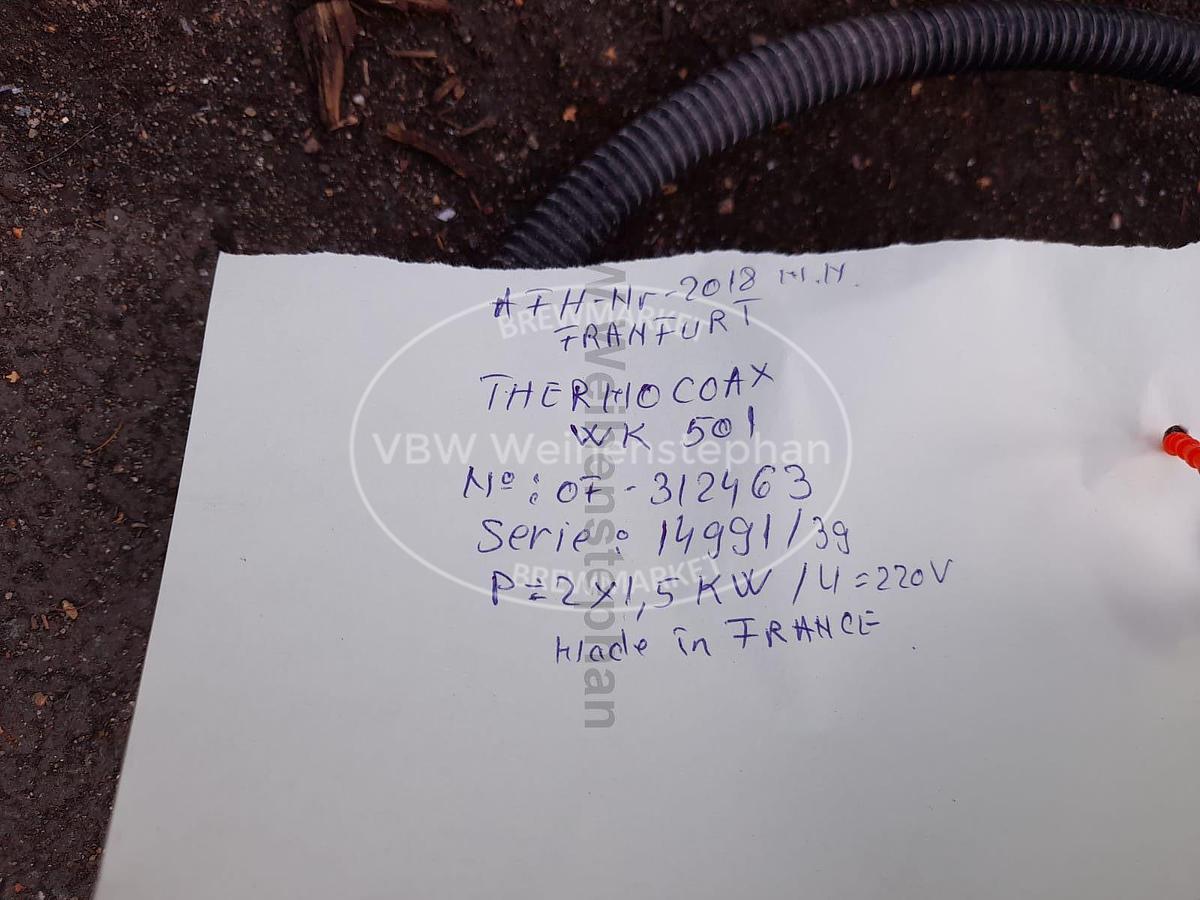 AFH-Nr-2018 M.M.
FRANFURT
THERMOCOAX
WK 501
Nº: 07-312463
Serie: 14991/39
P=2x1,5 KW /U=220V
Made in FRANCE
BREWMARKET
VBW Weihenstephan
BREWMARKET
VBW Weihenstephan